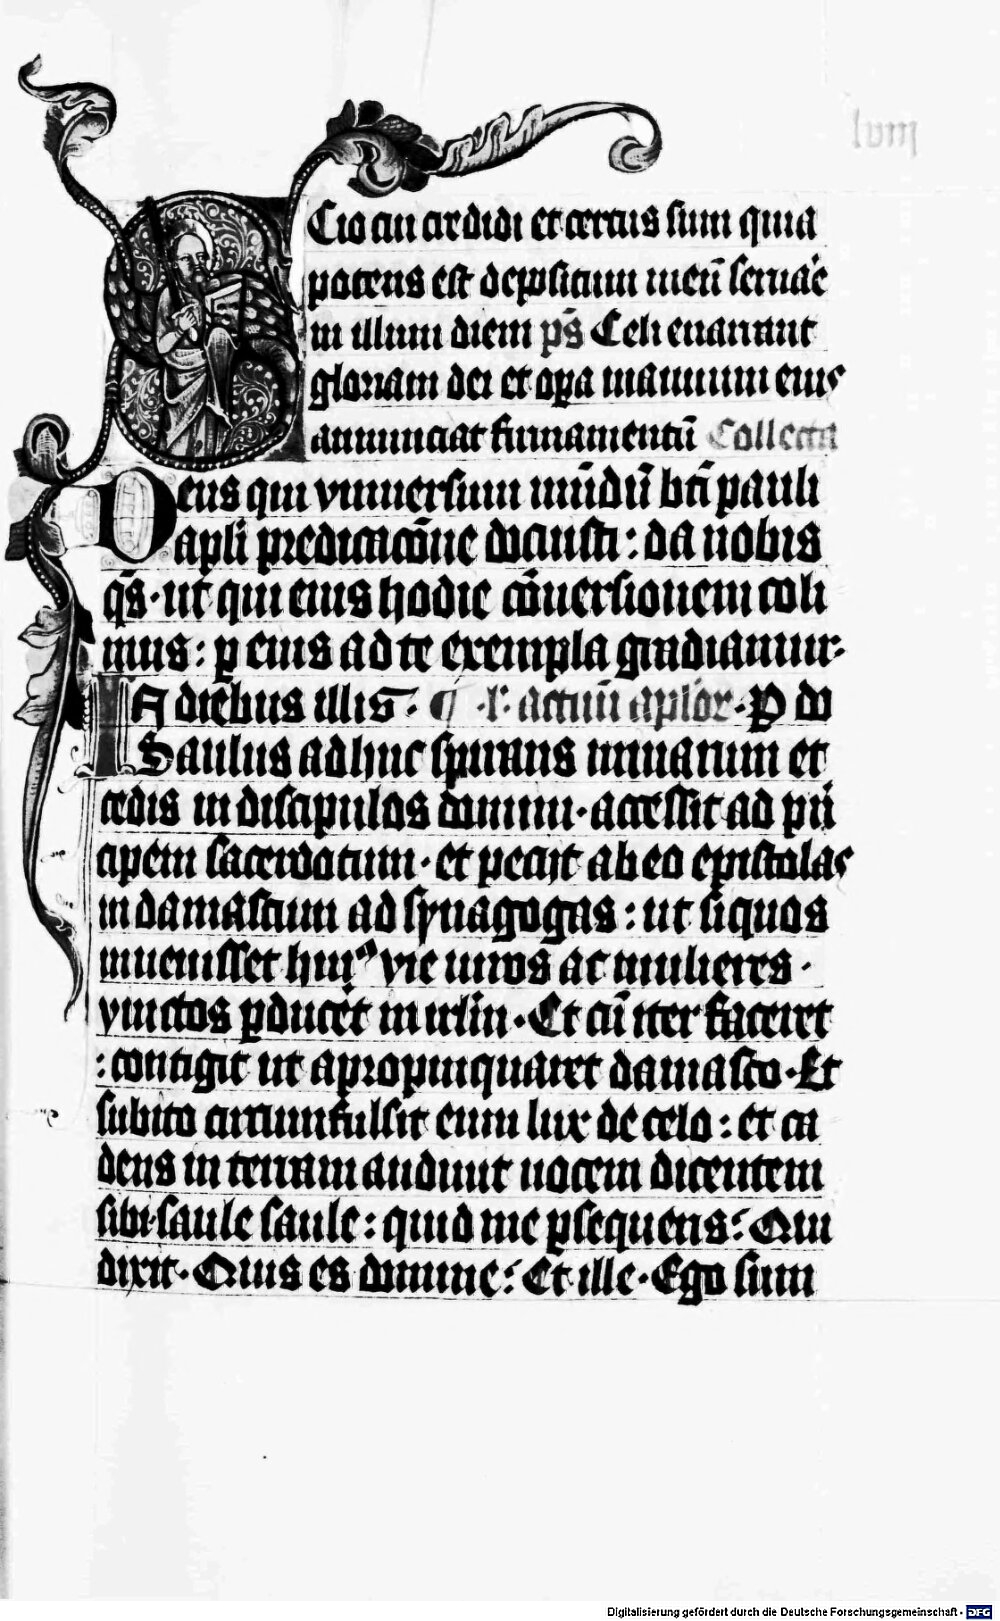 lviij
SCio cui credidi et certus sum quia
potens est depositum meū seruaꝛe
in illum diem p̄s Celi enarrant
gloriam dei et oꝑa manuum eius
annunciat firmamentū Collecta
Deus qui vniuersum mūdū bt̄i pauli
apl̄i predicacōne docuisti : da nobis
q̄s · ut qui eius hodie cōuersionem coli
mus : ꝑ eius ad te exempla gradiamur ·
IN diebus illis · ¶ · l' actuū aplor · P di
Saulus adhuc spirans minarum et
cedis in discipulos domini · accessit ad pn̄
cipem sacerdotum · et pecijt ab eo epistolas
in damascum ad synagogas : ut siquos
inuenisset huiꝰ vie uiros ac mulieres ·
vinctos ꝑduceret in irl̄m · Et cū iter faceret
: contigit ut apropinquaret damasco · Et
subito circumfulsit eum lux de celo : et ca
dens in terram audiuit uocem dicentem
sibi · saule saule : quid me ꝑsequeris ? Qui
dixit · Quis es domine ? Et ille · Ego sum
Digitalisierung gefördert durch die Deutsche Forschungsgemeinschaft - DFG